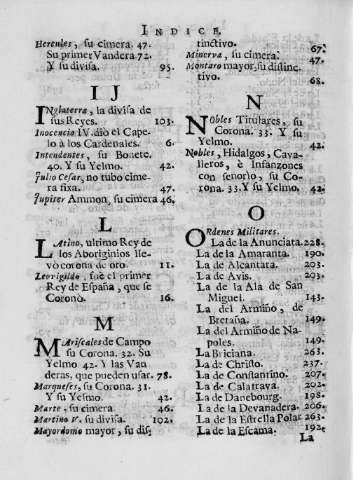 INDICE.
Hercules, su cimera. 47.
Su primer Vandera 72.
Y su divisa. 95.
IJ
INglaterra, la divisa de
sus Reyes. 103.
Inocencio IV. dio el Cape-
lo à los Cardenales. 6.
Intendentes, su Bonete.
40. Y su Yelmo. 42.
Julio Cesar, no tubo cime-
ra fixa. 47.
Jupiter Ammon, su cimera 46.
L
LAtino, ultimo Rey de
los Aboriginios lle-
vò corona de oro. 11.
Leovigildo, fue el primer
Rey de España, que se
Coronò. 16.
M
MAriscales de Campo
su Corona. 32. Su
Yelmo 42. Y las Van
deras, que pueden usar. 78.
Marqueses, su Corona. 31.
Y su Yelmo. 42.
Marte, su cimera 46.
Martino V. su divisa. 102.
Mayordomo mayor, su dis-
tinctivo. 67.
Minerva, su cimera. 47.
Montero mayor, su distinc-
tivo. 68.
N
NObles Titulares, su
Corona. 33. Y su
Yelmo. 42.
Nobles, Hidalgos, Cava-
lleros, è Infanzones
con señorìo, su Co-
rona. 33. Y su Yelmo. 42.
O
ORdenes Militares.
La de la Anunciata. 228.
La de la Amaranta. 190.
La de Alcantara. 203.
La de Avis. 203.
La de la Ala de San
Miguel. 143.
La del Armiño, de
Bretaña. 149.
La del Armiño de Na-
poles. 149.
La Briciana. 263.
La de Christo. 237.
La de Constantino. 207.
La de Calatrava. 202.
La de Danebourg. 198.
La de la Devanadera. 206.
La de la Estrella Polar 263.
La de la Escama. 192.
La